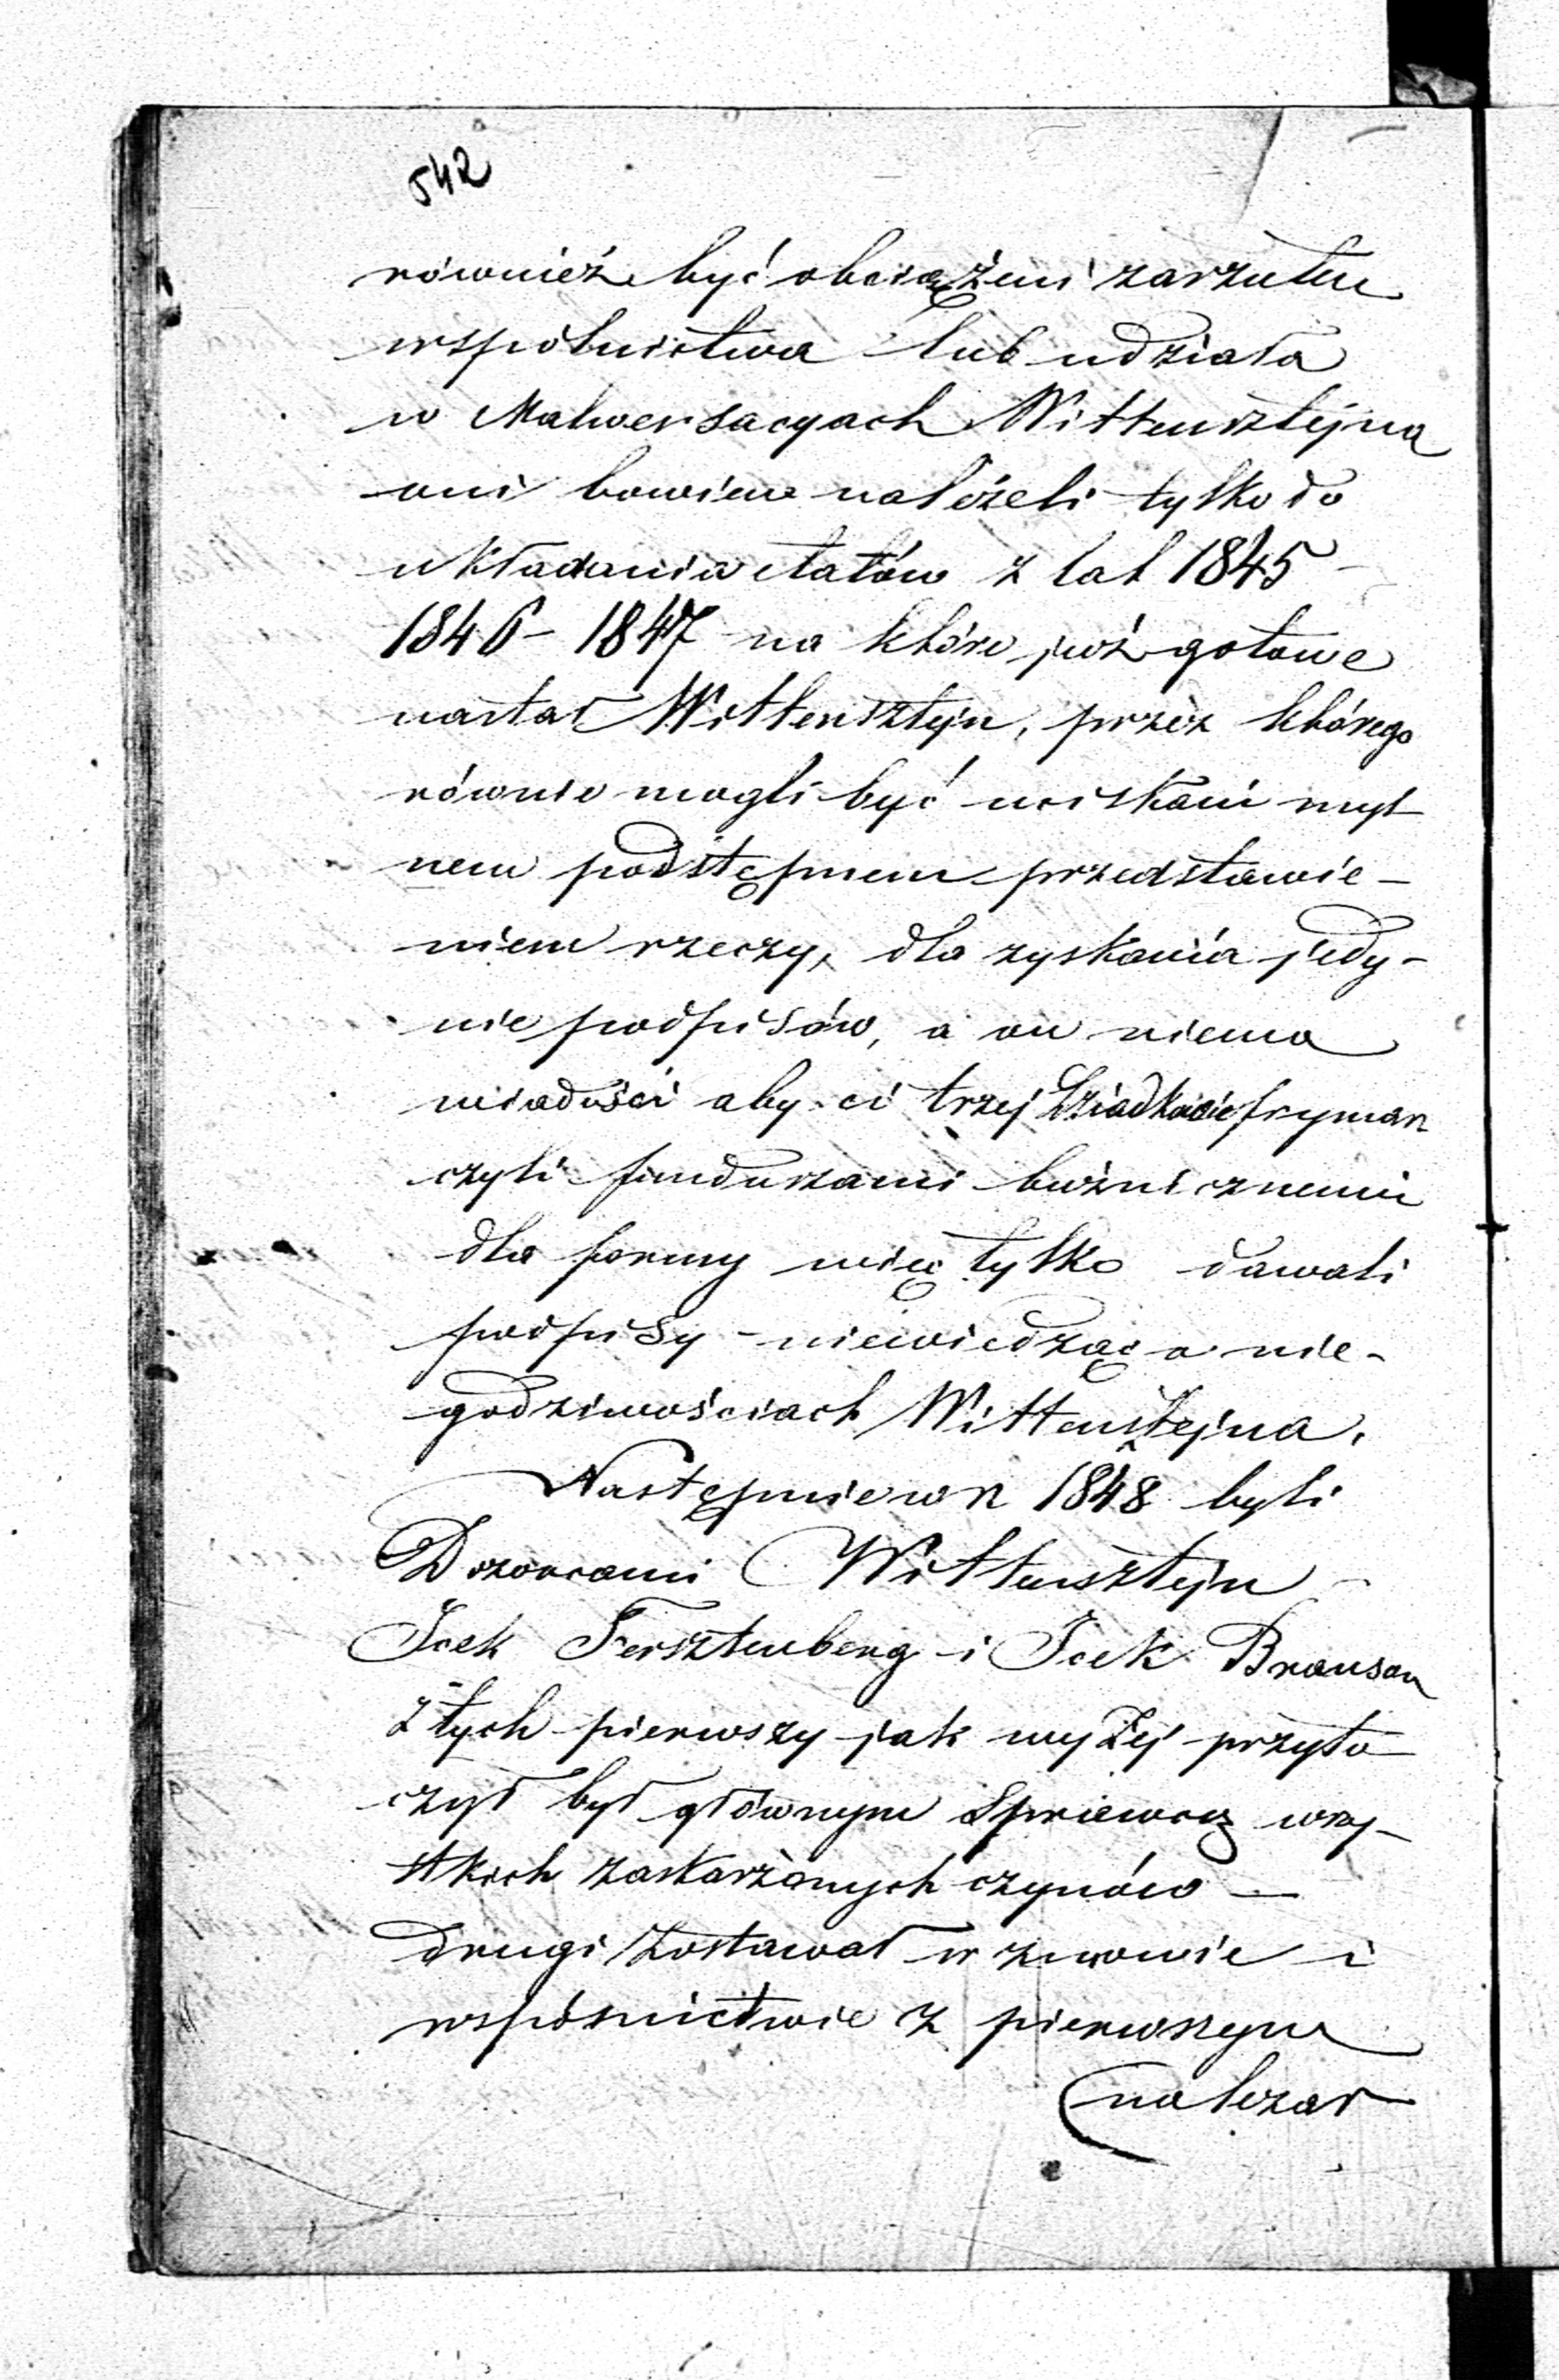 542
również być obciążeni zarzutem
wspólnictwa lub udziała
w Malwersacyach Wittensztejna
oni bowiem należeli tylko do
układania etatów z lat 1845 –
1846 – 1847 na które już gotowe
nastał Wittensztejn, przez którego
równie mogli być uciskani myl
nem podstępnem przedstawie –
niem rzeczy, dla zyskania jedy –
nie podpisów, a on niema
wiadości aby ci trzej frymar
czyli funduszami bużnicznemi
dla formy więc tylko dawali
podpisy – niewiedząc o nie –
godziwościach Wittensztejna.
Następnie w r 1848 byli
Dozorcami Wittensztejn –
Icek Fersztenberg i Icek Braunson
z tych pierwszy jak wyżej przyto
czył był głównym Sprawcą wszy –
stkich zaskarżonych czynów —
drugi zostawał w zmowie i
wspólnictwie z pierwszym